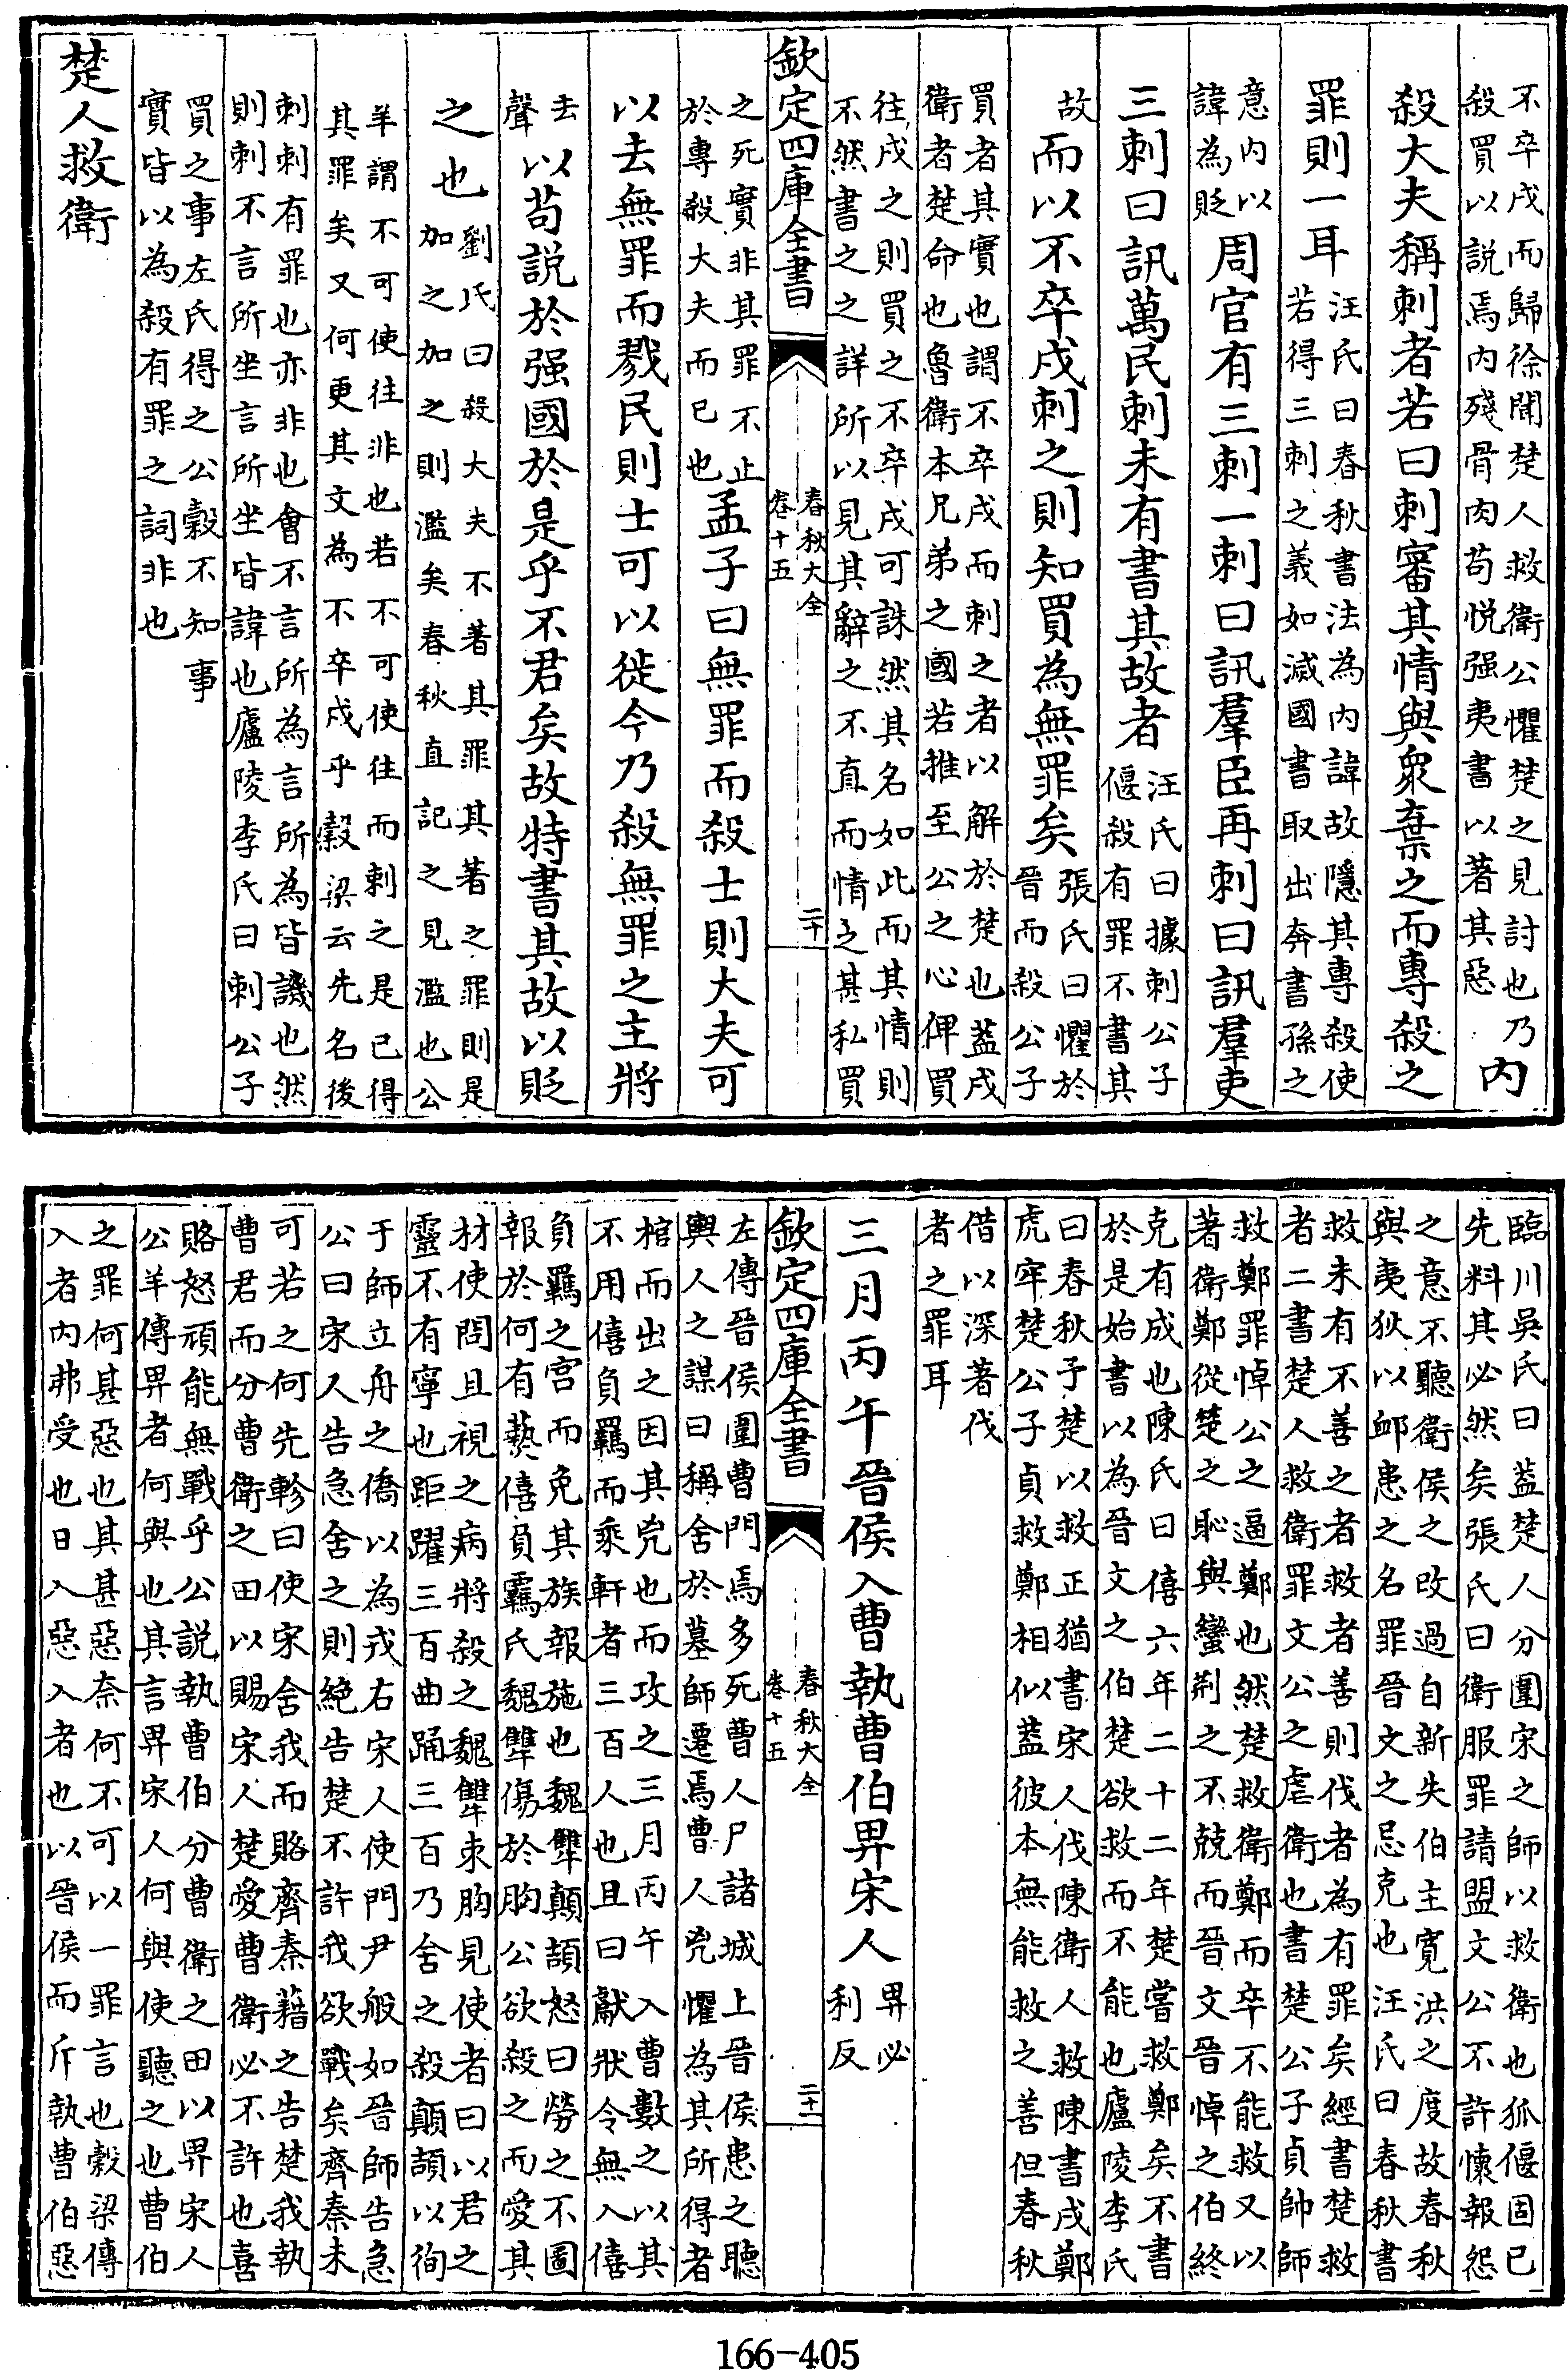 不卒戍而歸徐聞楚人救衛公懼楚之見討也乃
殺買以說焉内殘骨肉苟悅强夷書以著其惡
内
殺大夫稱刺者若曰刺審其情與衆棄之而專殺之
罪則一耳
汪氏曰春秋書法為内諱故隱其專殺使
若得三刺之義如滅國書取出奔書孫之
意内以
諱為貶
周官有三刺一刺曰訊羣臣再刺曰訊羣吏
三刺曰訊萬民刺未有書其故者
汪氏曰據刺公子
偃殺有罪不書其
故
而以不卒戍刺之則知買為無罪矣
張氏曰懼於
晉而殺公子
買者其實也謂不卒戍而刺之者以解於楚也葢戍
衛者楚命也魯衛本兄弟之國若推至公之心俾買
往戍之則買之不卒戍可誅然其名如此而其情則
不然書之之詳所以見其辭之不直而情之甚私買
欽定四庫全書
春秋大全
卷十五
二十
之死實非其罪不止
於專殺大夫而已也
孟子曰無罪而殺士則大夫可
以去無罪而戮民則士可以徙今乃殺無罪之主將
去
聲
以苟說於强國於是乎不君矣故特書其故以貶
之也
劉氏曰殺大夫不著其罪其著之罪則是
加之加之則濫矣春秋直記之見濫也公
羊謂不可使往非也若不可使往而刺之是已得
其罪矣又何更其文為不卒戍乎穀梁云先名後
刺刺有罪也亦非也會不言所為言所為皆譏也然
則刺不言所坐言所坐皆諱也廬陵李氏曰刺公子
買之事左氏得之公穀不知事
實皆以為殺有罪之詞非也
楚人救衛
臨川吳氏曰葢楚人分圍宋之師以救衛也狐偃固已
先料其必然矣張氏曰衛服罪請盟文公不許懷報怨
之意不聽衛侯之改過自新失伯主寛洪之度故春秋
與夷狄以䘏患之名罪晉文之忌克也汪氏曰春秋書
救未有不善之者救者善則伐者為有罪矣經書楚救
者二書楚人救衛罪文公之虐衛也書楚公子貞帥師
救鄭罪悼公之逼鄭也然楚救衛鄭而卒不能救又以
著衛鄭從楚之恥與蠻荆之不兢而晉文晉悼之伯終
克有成也陳氏曰僖六年二十二年楚嘗救鄭矣不書
於是始書以為晉文之伯楚欲救而不能也廬陵李氏
曰春秋予楚以救正猶書宋人伐陳衛人救陳書戍鄭
虎牢楚公子貞救鄭相似葢彼本無能救之善但春秋
借以深著伐
者之罪耳
三月丙午晉侯入曹執曹伯畀宋人
畀必
利反
欽定四庫全書
春秋大全
卷十五
二十一
左傳晉侯圍曹門焉多死曹人尸諸城上晉侯患之聽
輿人之謀曰稱舍於墓師遷焉曹人兇懼為其所得者
棺而出之因其兇也而攻之三月丙午入曹數之以其
不用僖負羈而乘軒者三百人也且曰獻狀令無入僖
負羈之宮而免其族報施也魏犫顛頡怒曰勞之不圖
報於何有爇僖負羈氏魏犫傷於胸公欲殺之而愛其
材使問且視之病將殺之魏犫束胸見使者曰以君之
靈不有寧也距躍三百曲踊三百乃舍之殺顛頡以徇
于師立舟之僑以為戎右宋人使門尹般如晉師告急
公曰宋人告急舍之則絶告楚不許我欲戰矣齊秦未
可若之何先軫曰使宋舍我而賂齊秦藉之告楚我執
曹君而分曹衛之田以賜宋人楚愛曹衛必不許也喜
賂怒頑能無戰乎公說執曹伯分曹衛之田以畀宋人
公羊傳畀者何與也其言畀宋人何與使聽之也曹伯
之罪何甚惡也其甚惡奈何不可以一罪言也穀梁傳
入者内弗受也日入惡入者也以晉侯而斥執曹伯惡
166-405